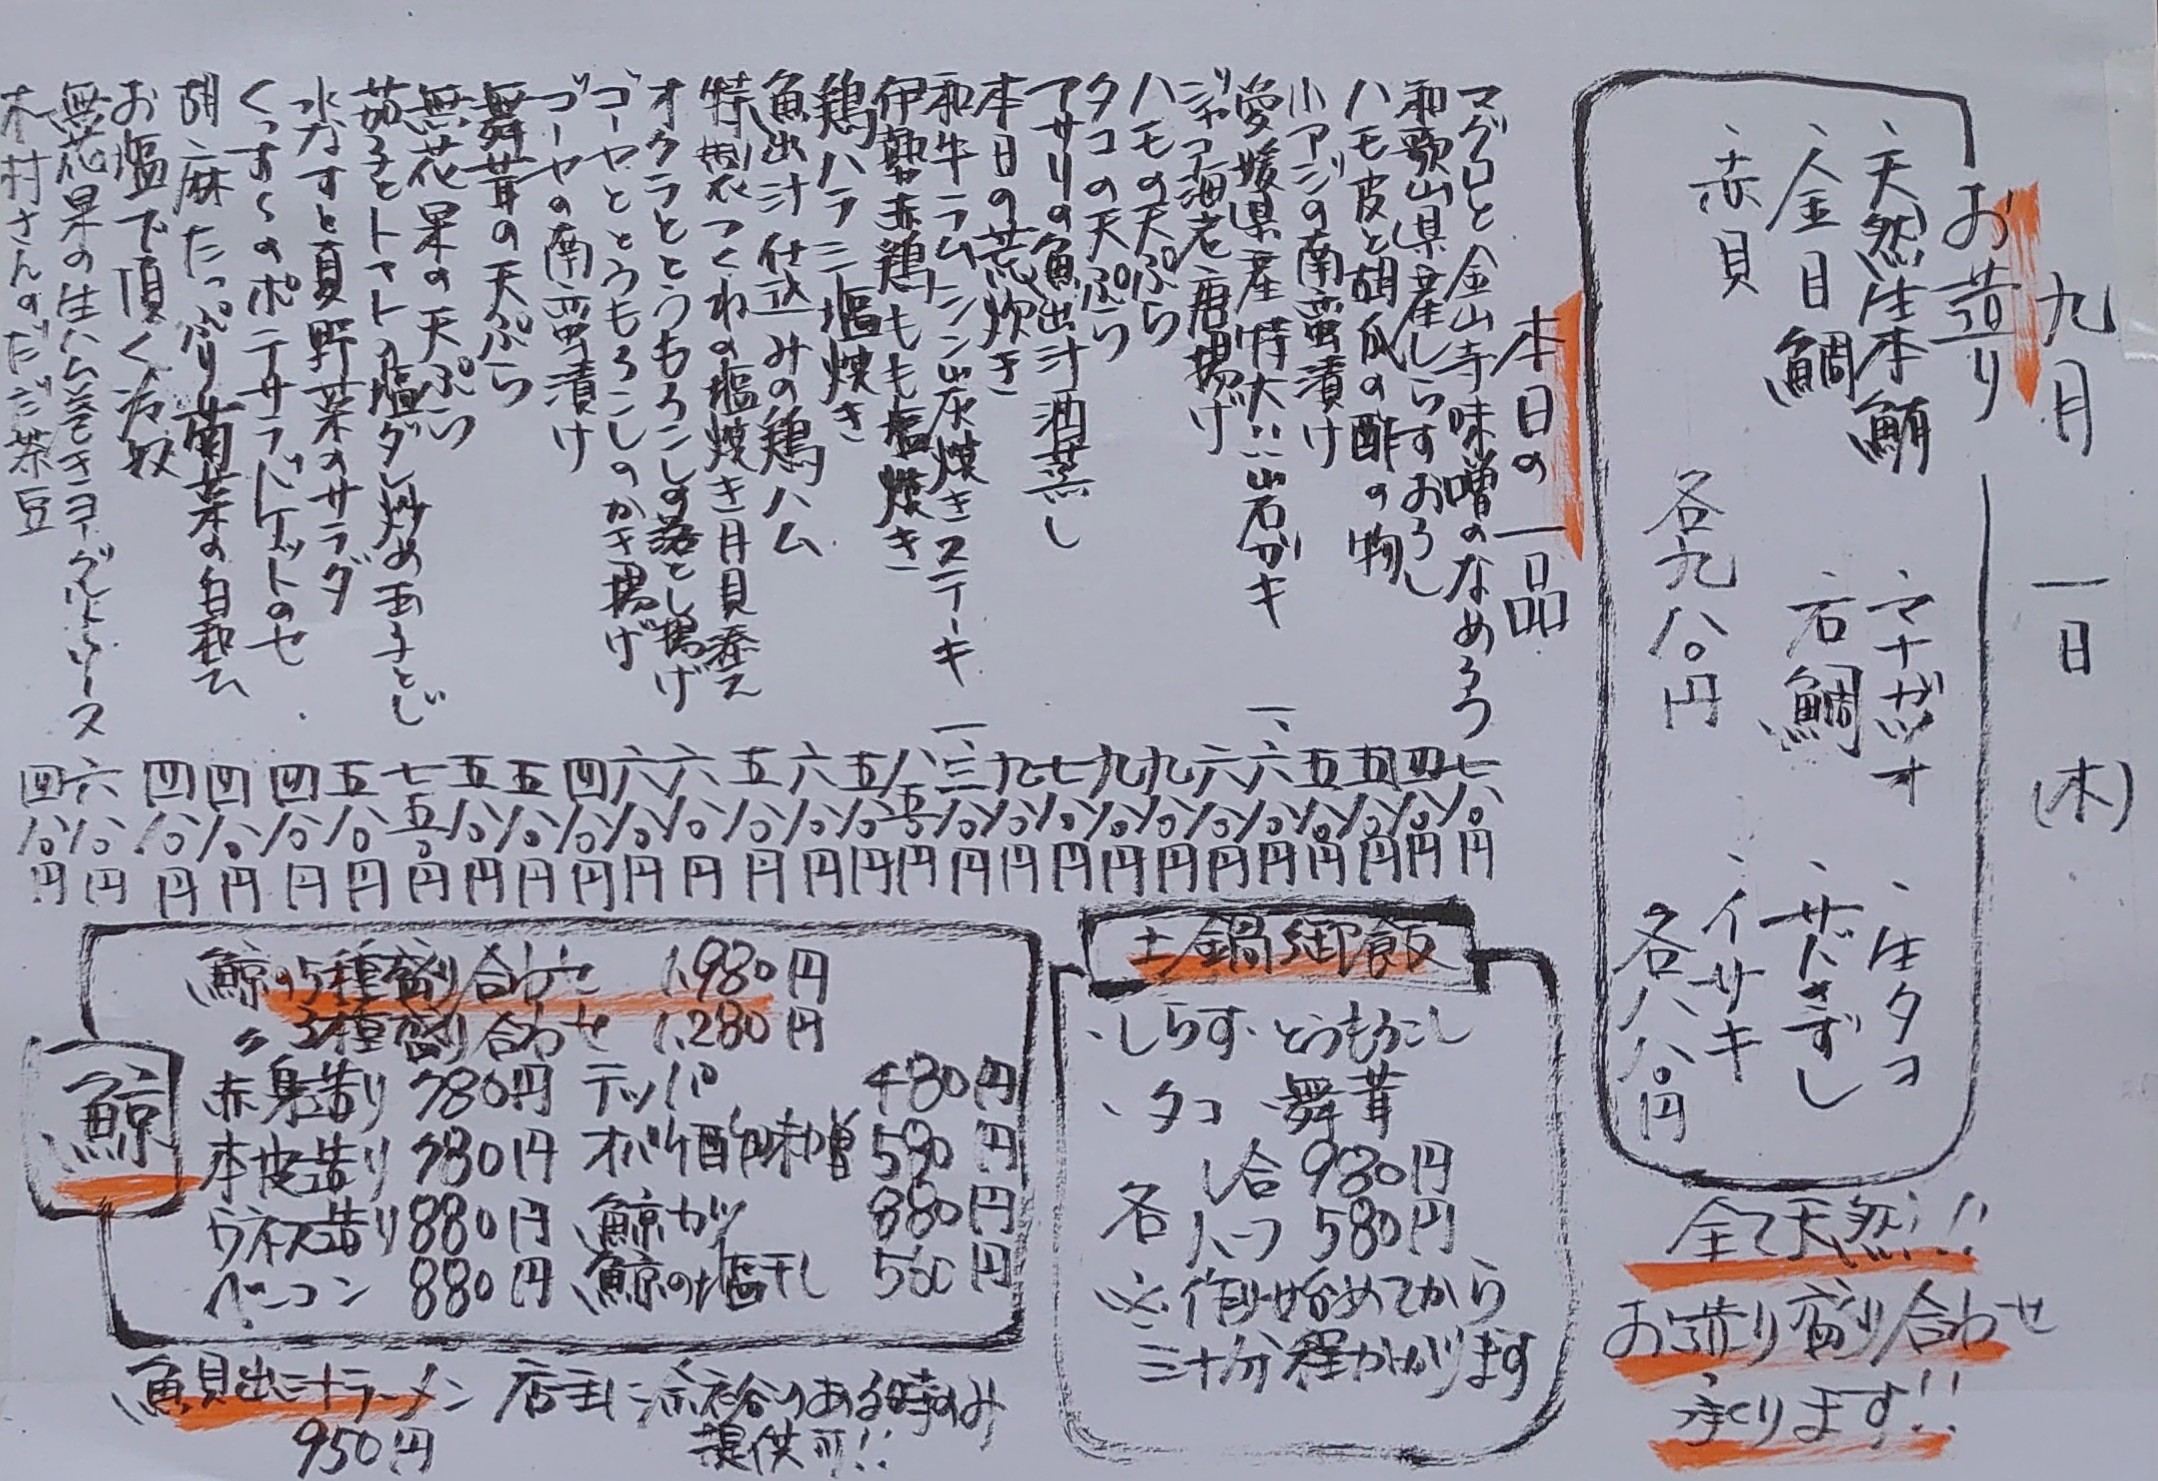 九月 一日 (木)
お造り
、天然生本鮪 、マナガツオ 、生タコ
、金目鯛 、石鯛 、サバきずし
、赤貝 、イサキ
各九八〇円 各八八〇円
全て天然!!
お造り盛り合わせ
承ります!!
本日の一品
マグロと金山寺味噌のなめろう 七八〇円
和歌山県産しらすおろし 四八〇円
ハモ皮と胡瓜の酢の物 五八〇円
小アジの南蛮漬け 五八〇円
愛媛県産特大!!岩ガキ 一、六八〇円
ジャコ海老唐揚げ 六八〇円
ハモの天ぷら 九八〇円
タコの天ぷら 九八〇円
アサリの魚出汁酒蒸し 七八〇円
本日の荒炊き 九八〇円
和牛ラムトンシン炭焼きステーキ 一、三八〇円
伊勢赤鶏もも塩焼き 八五〇円
鶏ハラミ塩焼き 五八〇円
魚出汁仕込みの鶏ハム 六八〇円
特製つくねの塩焼き月見添え 五八〇円
オクラととうもろこしの落とし揚げ 六八〇円
ゴーヤととうもろこしのかき揚げ 六八〇円
ゴーヤの南蛮漬け 四八〇円
舞茸の天ぷら 五八〇円
無花果の天ぷら 五八〇円
茄子とトマトの塩ダレ炒め玉子とじ 七五〇円
水なすと夏野菜のサラダ 五八〇円
くっすくのポテサラバケットのせ 四八〇円
胡麻たっぷり菊菜の白和え 四八〇円
お塩で頂く冷奴 四八〇円
無花果の生ハム巻きヨーグルトソース 六八〇円
木村さんのだだ茶豆 四八〇円
土鍋御飯
・しらす ・とうもろこし
・タコ ・舞茸
各 1合 980円
ハーフ 580円
※作り始めてから
三十分程かかります
鯨
鯨の5種盛り合わせ 1,980円
〃 3種盛り合わせ 1,280円
赤身造り 780円 テッパ 480円
本皮造り 780円 オバケ酢味噌 580円
ウネス造り 880円 鯨カツ 880円
ベーコン 880円 鯨の塩干し 580円
魚貝出汁ラーメン 店主に余裕のある時のみ
950円 提供可!!